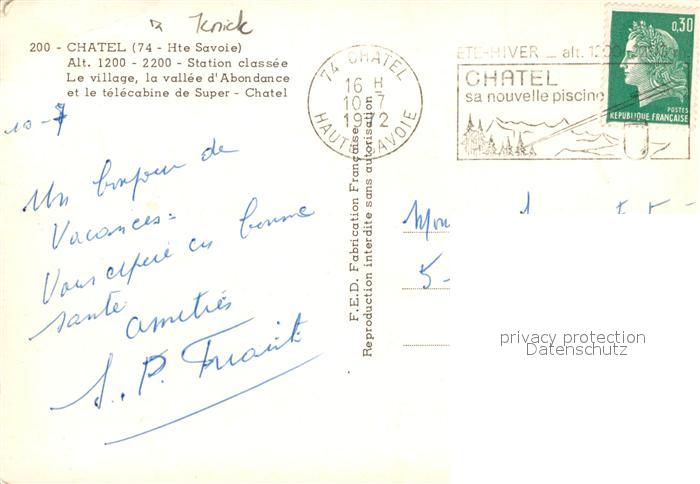 Knick
200 - CHATEL (74 - Hte Savoie)
Alt. 1200 - 2200 - Station classée
Le village, la vallée d'Abondance
et le télécabine de Super - Chatel
74 CHATEL
16 H
10-7
1972
HAUTE SAVOIE
ETE-HIVER _ alt.
CHATEL
sa nouvelle piscine
0,30
POSTES
REPUBLIQUE FRANÇAISE
10-7
Un bonjour de
Vacances =
Vous espère en bonne
santé
amitiés
F.E.D. Fabrication Française
Reproduction interdite sans autorisation
Mon
5-
privacy protection
Datenschutz